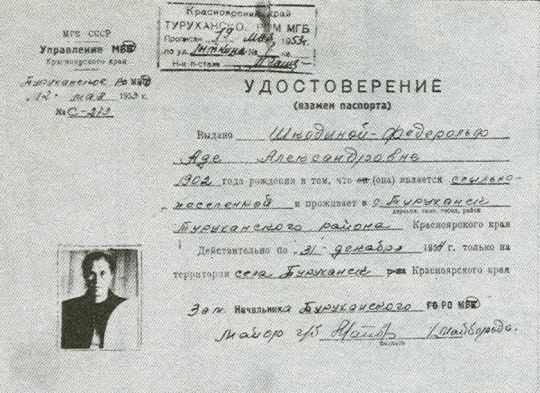 МГБ СССР
Управление МВД
Красноярского края
Туруханское РО МВД
12 мая 1953 г.
№ С-213
Красноярский край
ТУРУХАНСКО. Р М МГБ
Прописан 19 мая 1953 г.
по ул. №
Н-к п-стола
УДОСТОВЕРЕНИЕ
(взамен паспорта)
Выдано Шкодиной-Федерольф
Аде Александровне
1902 года рождения в том, что он (она) является ссыльно-
поселенкой и проживает в с. Туруханск
деревня, село, город, район
Туруханского района Красноярского края
Действительно по „31“ декабря 1954 г. только на
территории села Туруханск р-на Красноярского края
Зам. Начальника Туруханского ГО-РО МВД
Майор г/б
Подпись